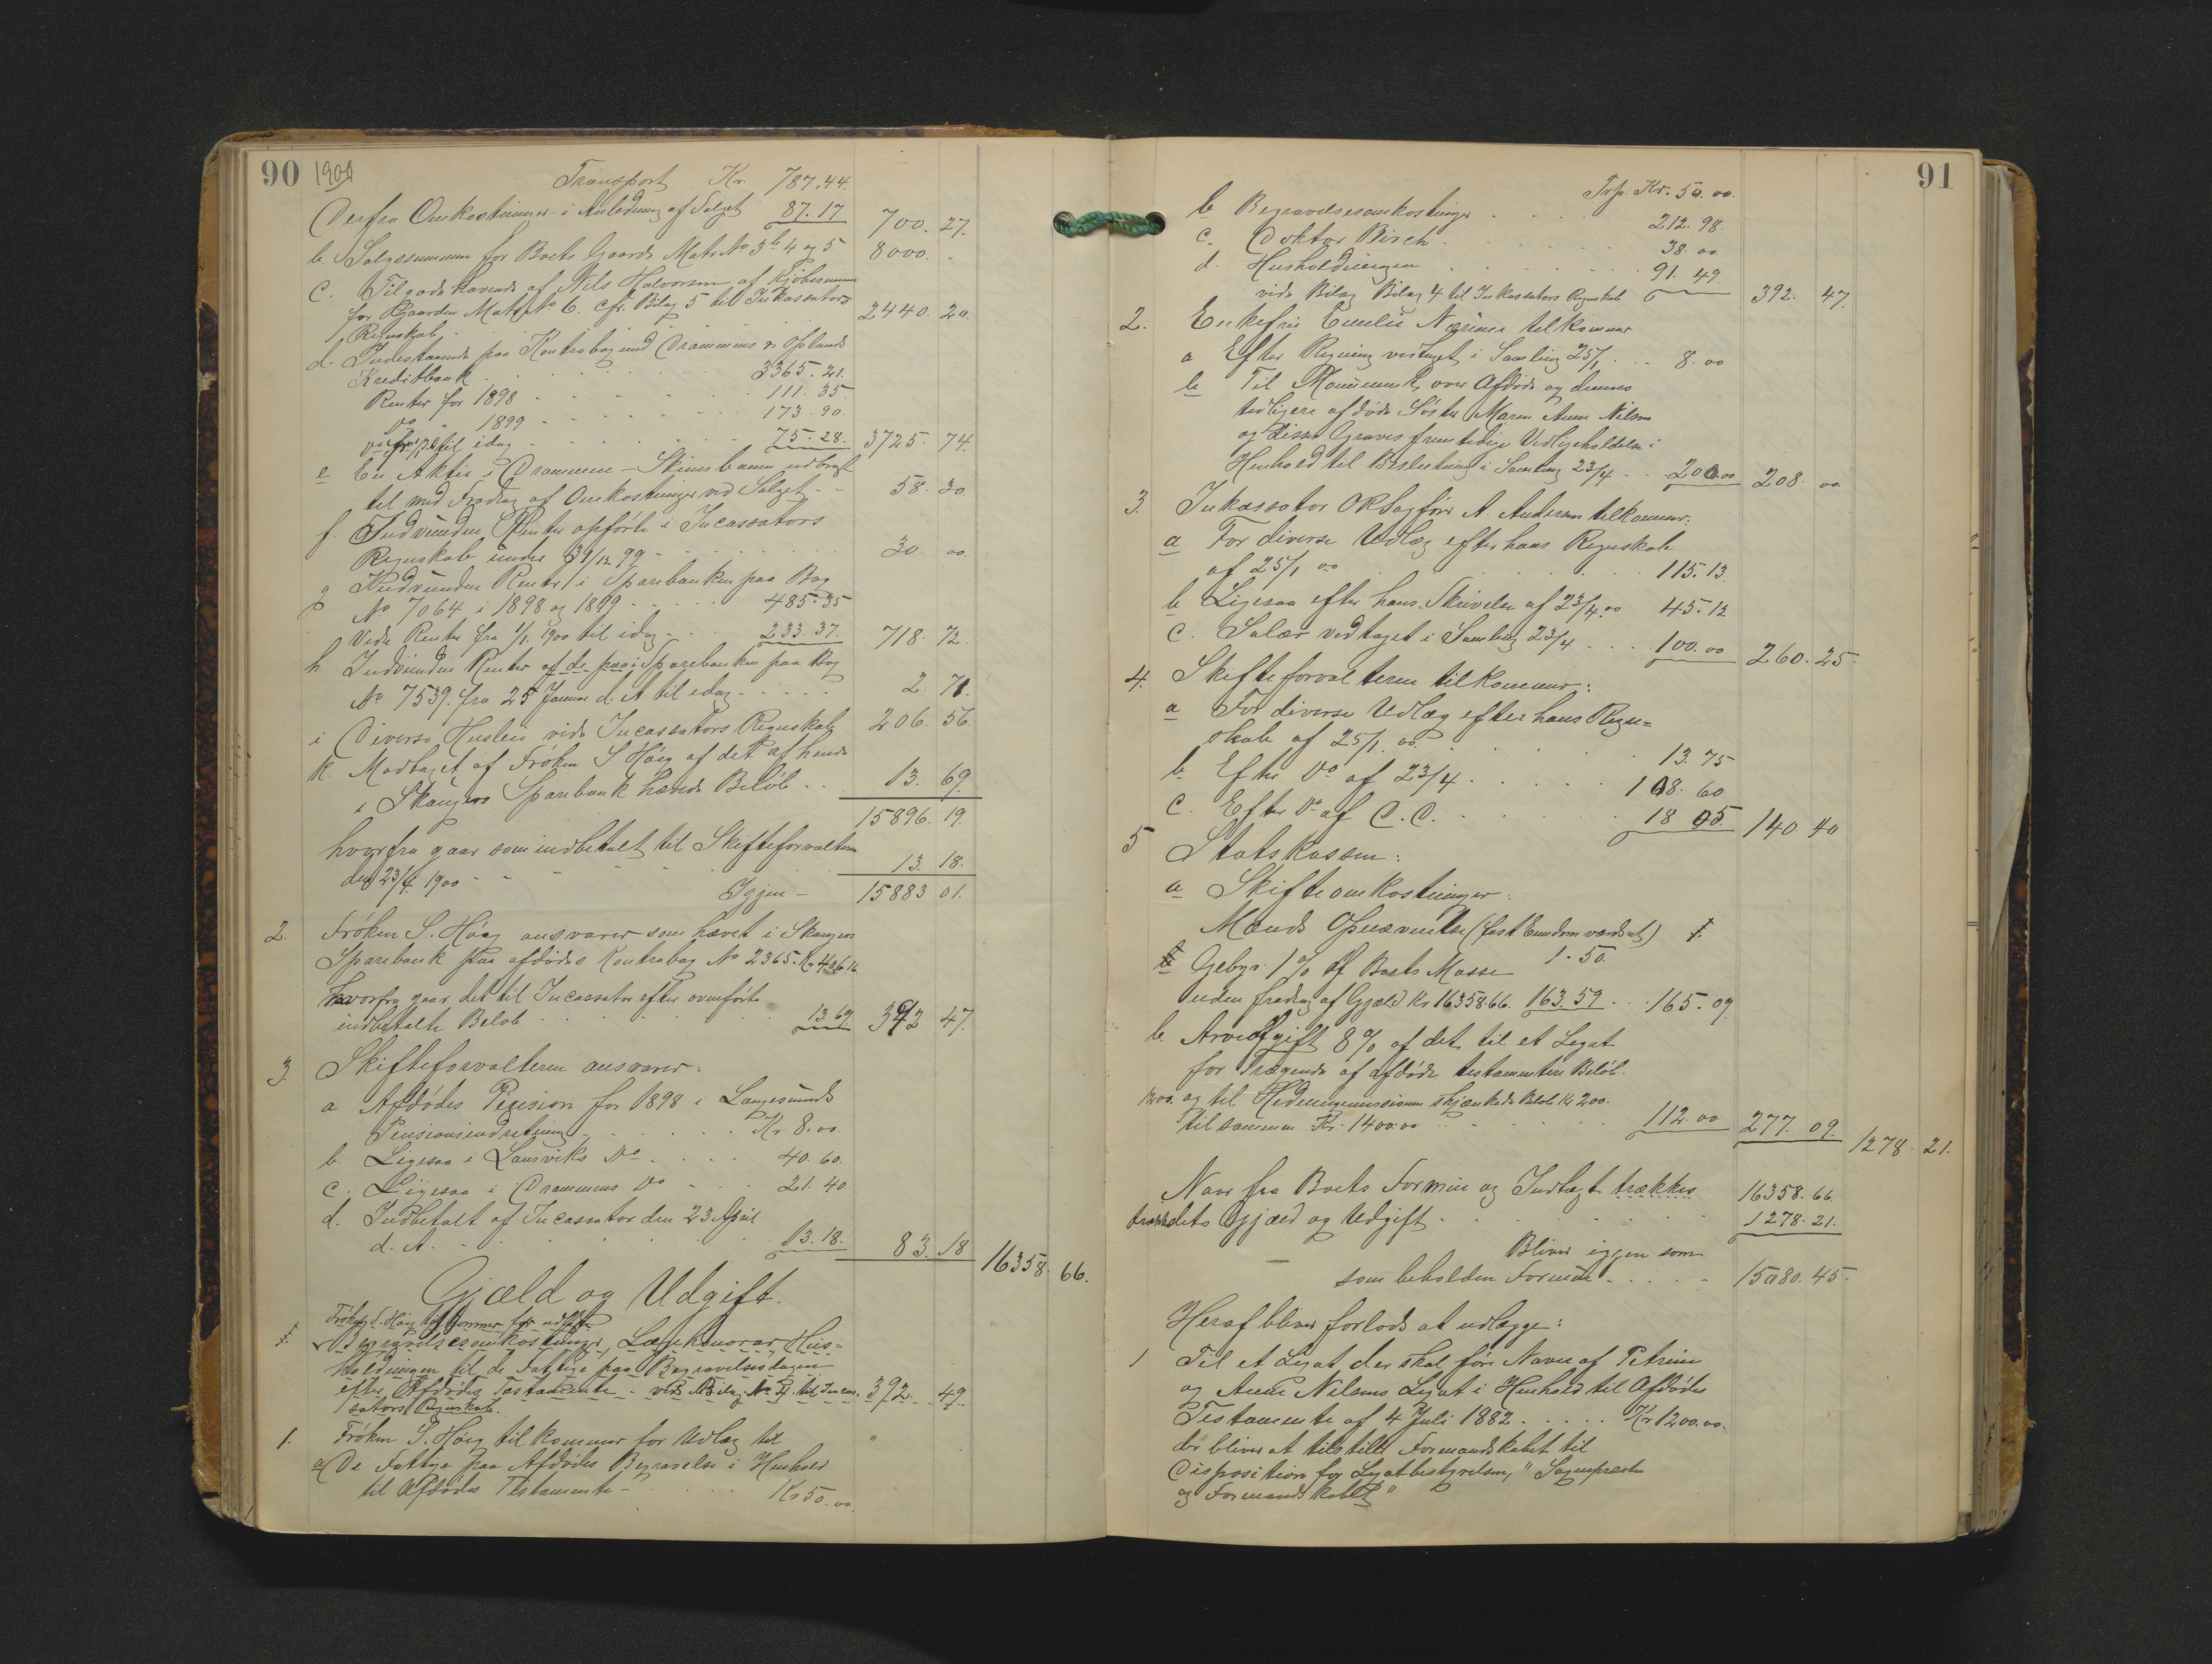 90 1900
Transport Kr. 787.44.
Derfra Omkostninger i Anledning af Salget 87.17 700. 27.
b Salgssummen for Boets Gaard Matr No 3b 4 og 5 8000. -
c. Tilgodehavende af Nils Halvorsen af Kjøbesummen
for Gaarden Matr. No 6. cfr. Bilag 5 til Inkassators
Regnskab - 2440. 20.
d. Indestaaende paa Kontrabog med Drammens & Oplands
Kreditbank 3365. 21.
Renter for 1898 111. 35
Do " 1899 173. 90.
Do fra 1/1 til idag 75. 28. 3725. 74.
e En Aktie i Drammen-Skiensbanen udbragt
til med Fradrag af Omkostninger ved Salget - - 58. 30.
f. Indvundne Renter opførte i Incassators
Regnskab under 31/12 99 - 30. 00.
g Indvundne Renter i Sparebanken paa Bog
No 7064 i 1898 og 1899 - 485. 35
Vide Renter fra 1/1. 1900 til idag - 233. 37. 718. 72.
h Indvundne Renter af de paa i Sparebanken paa Bog
No 7539. fra 25 Januar d. A til idag - - - - - 2. 71.
i Diverse Husleie vide Incassators Regnskab 206. 56.
k. Modtaget af Frøken S Høeg af det af hende
i Skaugers Sparebank hævede Beløb - - 13. 69.
15896. 19.
hvorfra gaar som indbetalt til Skifteforvalteren
den 23/4. 1900 - - 13. 18.
Igjen - 15883 01.
2. Frøken S. Høeg ansvarer som hævet i Skaugers
Sparebank paa afdødes Kontrabog No 2365. Kr 406.16
hvorfra gaar det til Incassator efter ovenførte
indbetalte Beløb 13. 69. 392 47.
3. Skifteforvalteren ansvarer:
a Afdødes Pension for 1898 i Langesunds
Pensionsindretning - Kr. 8. 00.
b. Ligesaa i Laurviks Do 40. 60.
c. Ligesaa i Drammens Do - - - 21. 40
d. Indbetalt af Incassator den 23 April
d. A. - 13. 18. 83. 18 16358. 66.
Gjæld og Udgift.
Frøken S. Høeg tilkommer for udlagt
1. Begravelsesomkostninger, Lægehonorar, Hus-
holdningen til de Fattige paa Begravelsesdagen
efter Afdødes Testamente - vide Bilag No 4 til Incas- 392. 49.
sators Regnskab.
1. Frøken S. Høeg tilkommer for Udlæg til
a De Fattige paa Afdødes Begravelse i Henhold
til Afdødes Testamente - Kr 50. 00.
91
Trsp. Kr. 50. 00.
b Begravelsesomkostninger 212. 98.
c. Doktor Birch 38. 00
d. Husholdningen 91. 49.
vide Bilag Bilag 4 til Inkassators Regnskab 392. 47.
2. Enkefru Emilie Nærum tilkommer
a Efter Regning vedtaget i Samling 25/1 - - 8. 00
b Til Monument over Afdøde og dennes
tidligere afdøde Søster Maren Anne Nilsen
og disse Graves fremtidige Vedligeholdelse i
Henhold til Beslutning i Samling 23/4 - - 200.00 208. 00
3. Inkassator ORSagfører A. Andersen tilkommer:
a For diverse Udlæg efter hans Regnskab
af 25/1 00 115. 13.
b Ligesaa efter hans Skrivelse af 23/4. 00 45. 12
c. Salær vedtaget i Samling 23/4 100. 00 260. 25.
4. Skifteforvalteren tilkommer:
a For diverse Udlæg efter hans Regn-
skab af 25/1. 00. 13. 75
b. Efter Do af 23/4 108. 60
c. Efter Do af C. C. 18 05. 140 40
5 Statskassen:
a Skifteomkostninger:
Mænds Opnævnelse (fast Eiendom værdsat) 1.
1. 50.
Gebyr 1% af Boets Masse
uden fradrag af Gjæld Kr 16358.66. 163. 59. - - 165. 09.
b. Arveafgift 8% af det til et Legat
for Trængende af afdøde testamenterede Beløb
1200. og til Hedningemissionen skjænkede Beløb Kr 200.
tilsammen Kr. 1400.00 112. 00 277. 09. 1278. 21.
Naar fra Boets Formue og Indtægt trækkes 16358. 66.
trækkes dets Gjæld og Udgift 1278. 21.
Bliver igjen som
som beholden Formue - 15080. 45.
Heraf bliver forlods at udlægge:
1 Til et Legat der skal føre Navn af Petrine
og Anne Nilsens Legat i Henhold til Afdødes
Testamente af 4 Juli 1882 Kr 1200.00.
der bliver at tilstille Formandskabet til
Disposition for Legatbestyrelsen, "Sognepræsten
og Formandskabet"